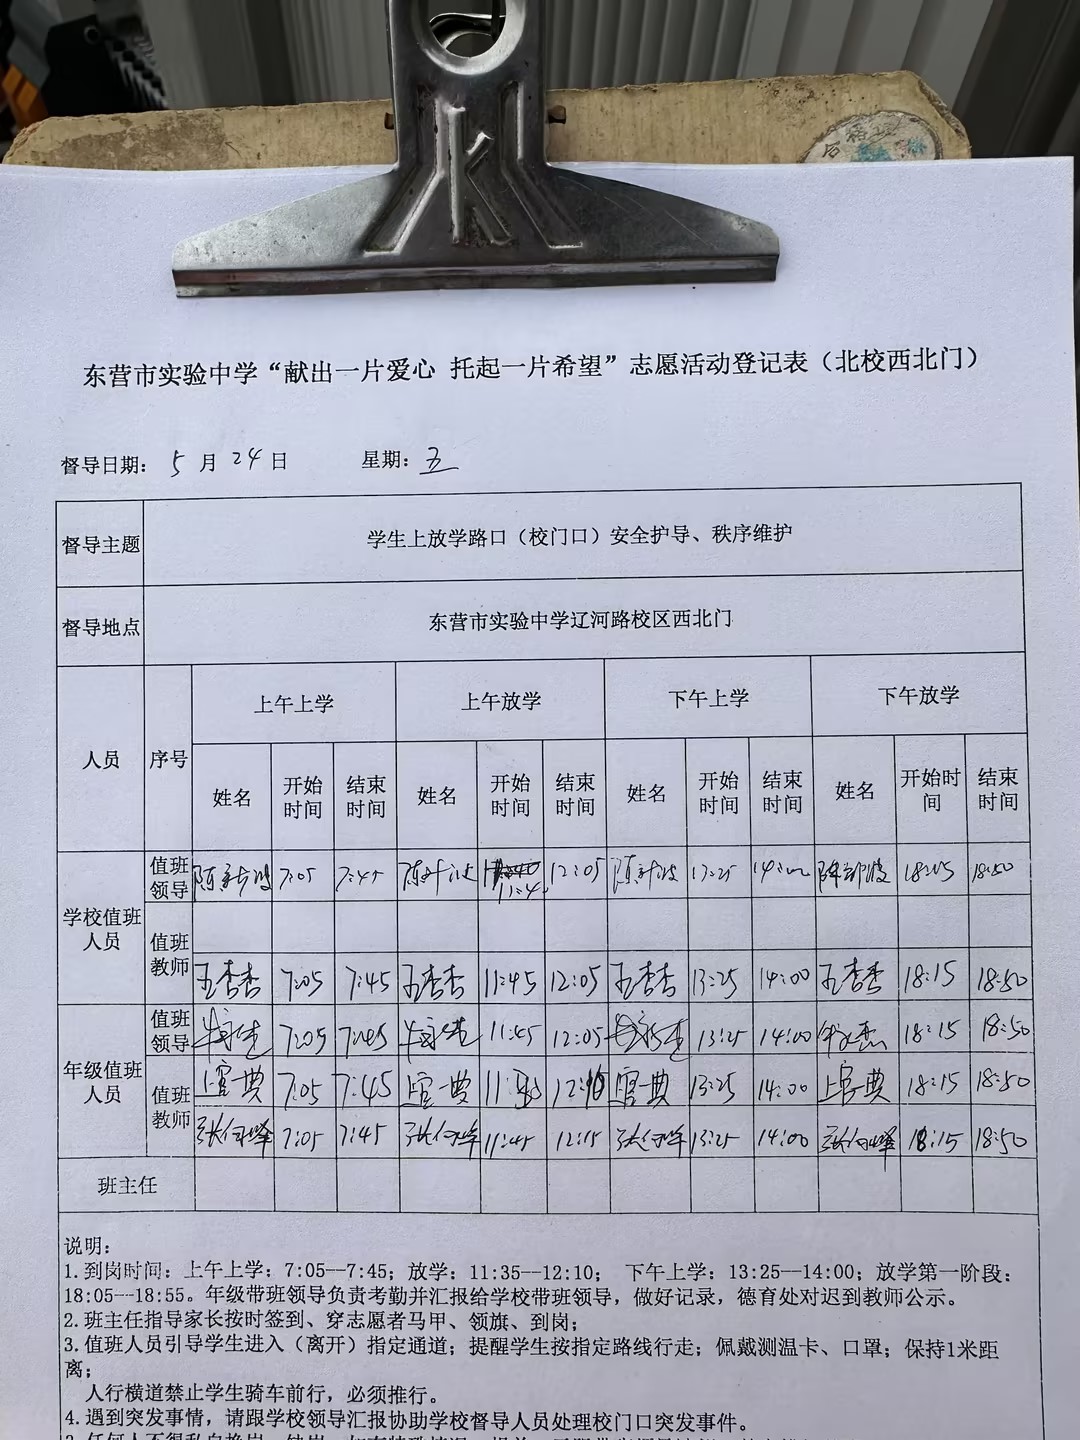 合格
东营市实验中学“献出一片爱心 托起一片希望”志愿活动登记表（北校西北门）
督导日期： 5 月 24 日 星期：五
督导主题 学生上放学路口（校门口）安全护导、秩序维护
督导地点 东营市实验中学辽河路校区西北门
人员 序号 上午上学 上午放学 下午上学 下午放学
姓名 开始时间 结束时间 姓名 开始时间 结束时间 姓名 开始时间 结束时间 姓名 开始时间 结束时间
学校值班人员
值班领导 7:05 7:45 12:05 13:25 18:15 18:50
值班教师 王杏杏 7:05 7:45 王杏杏 11:45 12:05 王杏杏 13:25 14:00 王杏杏 18:15 18:50
年级值班人员
值班领导 7:05 7:45 11:45 12:05 13:25 14:00 18:15 18:50
值班教师 上官一典 7:05 7:45 上官一典 上官一典 13:25 14:00 上官一典 18:15 18:50
7:05 7:45 11:45 12:15 13:25 14:00 18:15 18:50
班主任
说明：
1.到岗时间：上午上学：7:05--7:45；放学：11:35--12:10； 下午上学：13:25--14:00；放学第一阶段：
18:05--18:55。年级带班领导负责考勤并汇报给学校带班领导，做好记录，德育处对迟到教师公示。
2.班主任指导家长按时签到、穿志愿者马甲、领旗、到岗；
3.值班人员引导学生进入（离开）指定通道；提醒学生按指定路线行走；佩戴测温卡、口罩；保持1米距
离；
人行横道禁止学生骑车前行，必须推行。
4.遇到突发事情，请跟学校领导汇报协助学校督导人员处理校门口突发事件。